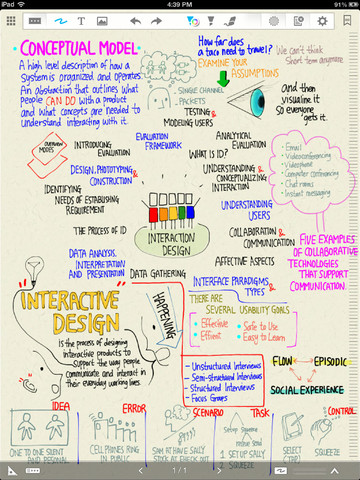 iPad
4:39 PM
91%
CONCEPTUAL MODEL
A high level description of how a
system is organized and operates.
An abstraction that outlines what
people CAN DO with a product
and what concepts are needed to
understand interacting with it.
How far does
a taco need to travel?
EXAMINE YOUR
ASSUMPTIONS
We can't think
short term anymore
and then
visualize it
so everyone
gets it.
SINGLE CHANNEL
PACKETS
TESTING &
MODELING USERS
OVERVIEW
MODES
INTRODUCING
EVALUATION
EVALUATION
FRAMEWORK
ANALYTICAL
EVALUATION
WHAT IS ID?
DESIGN, PROTOTYPING &
CONSTRUCTION
UNDERSTANDING &
CONCEPTUALIZING
INTERACTION
IDENTIFYING
NEEDS OF ESTABLISHING
REQUIREMENT
UNDERSTANDING
USERS
THE PROCESS OF ID
INTERACTION
DESIGN
COLLABORATION
& COMMUNICATION
DATA ANALYSIS,
INTERPRETATION
AND PRESENTATION
DATA GATHERING
AFFECTIVE ASPECTS
INTERFACE PARADIGMS &
TYPES
- Email
- Videoconferencing
- Videophone
- Computer conferencing
- Chat rooms
- Instant messaging
FIVE EXAMPLES
OF COLLABORATIVE
TECHNOLOGIES
THAT SUPPORT
COMMUNICATION
INTERACTIVE
DESIGN
is the process of designing
interactive products to
support the way people
communicate and interact in
their everyday working lives
HAPPENING
THERE ARE
SEVERAL USABILITY GOALS
Effective
Safe to Use
Efficient
Easy to Learn
- Unstructured Interviews
- Semi-structured Interviews
- Structured Interviews
- Focus Groups
FLOW
EPISODIC
SOCIAL EXPERIENCE
IDEA
ERROR
SCENARIO
TASK
CONTROL
ONE TO ONE SILENT
AND PERSONAL
CELL PHONES RING
IN PUBLIC
SAM AT HAVE SALLY
STOCK AT CHECK OUT
1 SET UP SALLY
2 SQUEEZE
SELECT
SQUEEZE
1 / 1